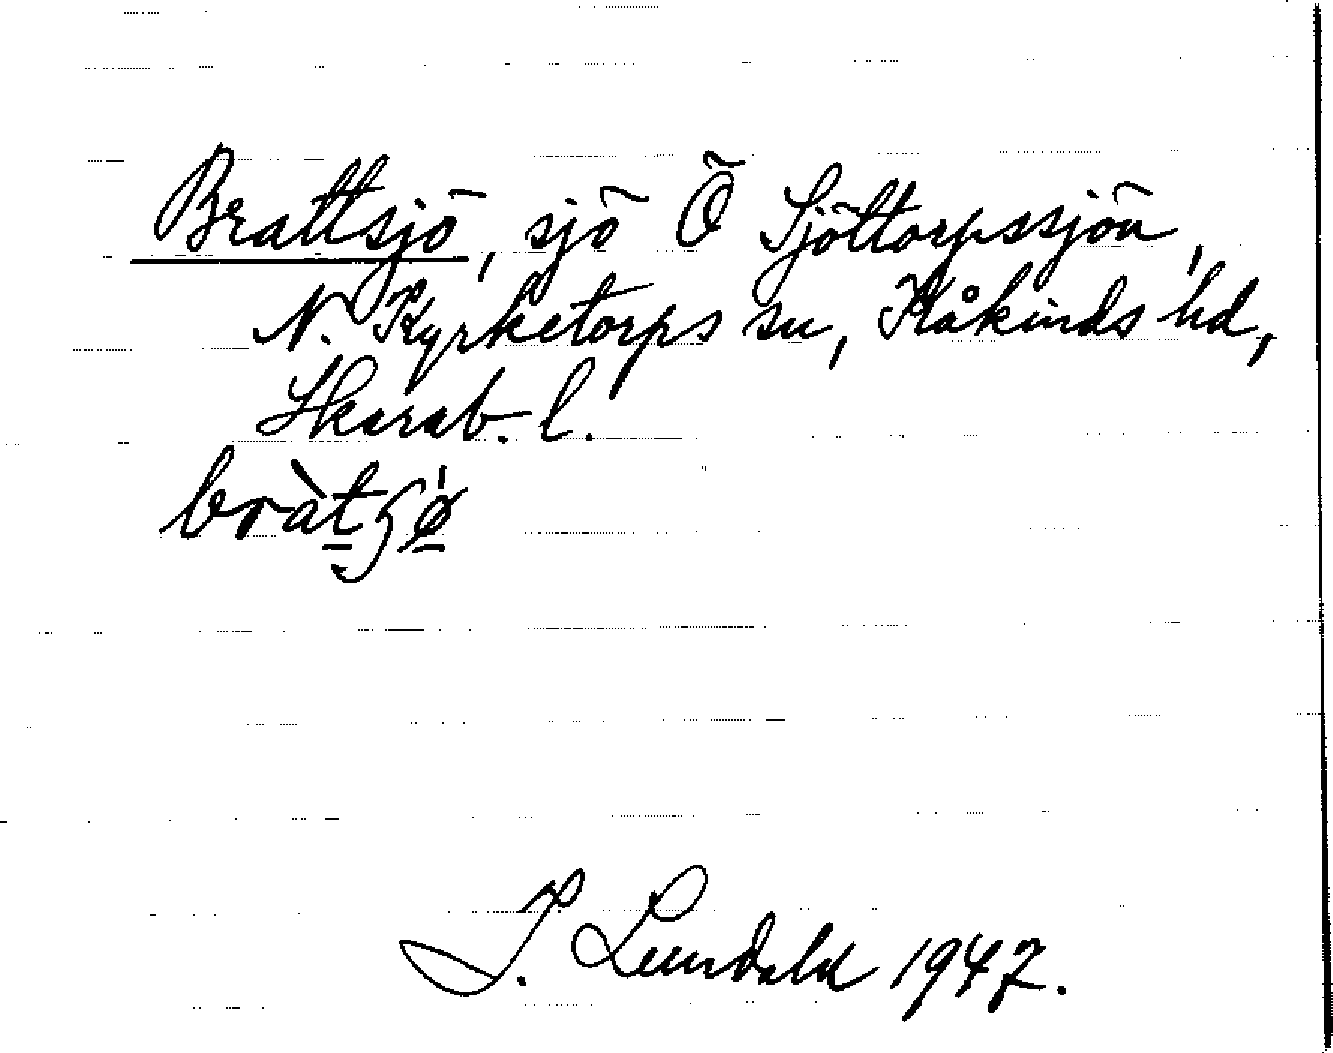 Brattsjö, sjö Ö Sjöttorpssjön,
N. Kyrketorps sn, Kåkinds hd,
Skarab. l.
bràtʂǿ
I. Lundahl 1947.